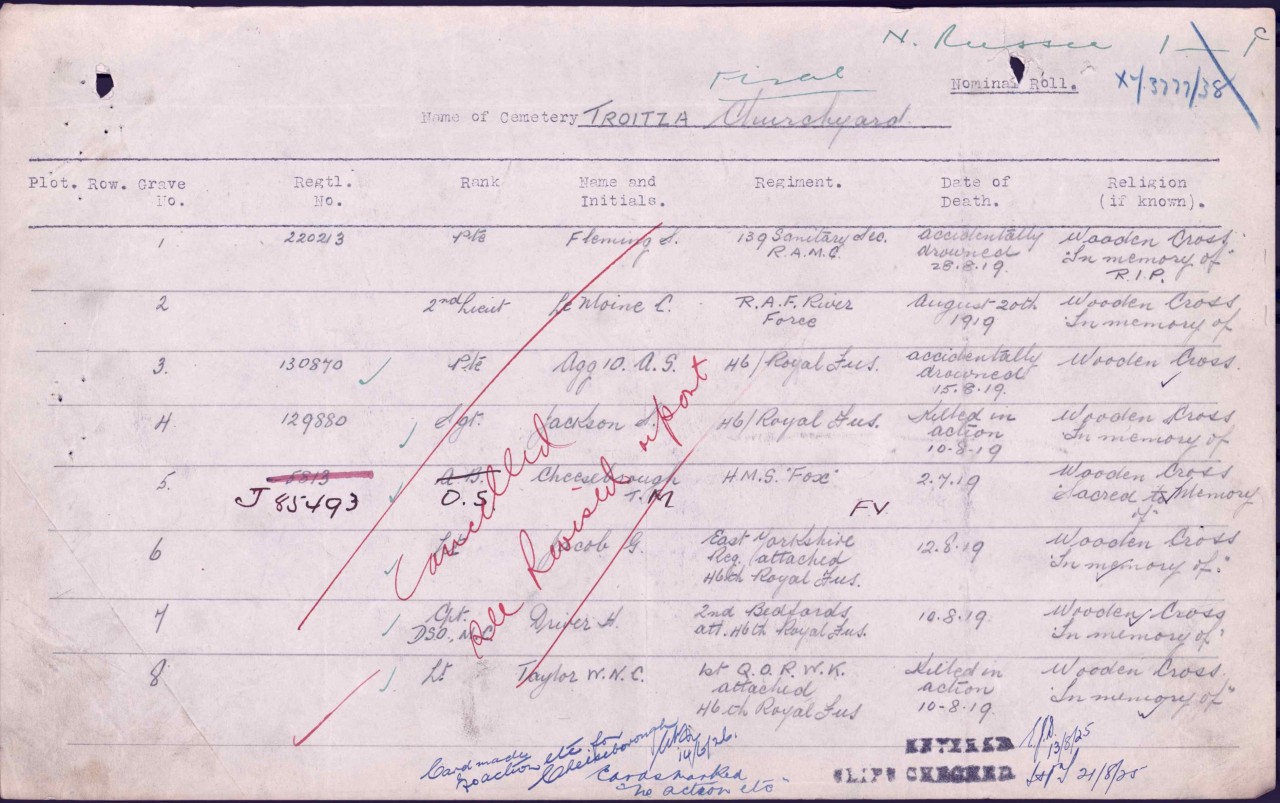 N. Russia 1 — 9
Final
Nominal Roll.
X/1.3777/38
Name of Cemetery TROITZA Churchyard.
Plot. Row. Grave No. Regtl. No. Rank Name and Initials. Regiment. Date of Death. Religion (if known).
1 220213 Pte Fleming S. 139 Sanitary Sec. accidentally Wooden Cross
R.A.M.C. drowned "In memory of"
28.8.19. R.I.P.
2 2nd Lieut Le Moine C. R.A.F. River August 20th Wooden Cross
Force 1919 "In memory of
3. 130870 Pte Agg 10. A.G. 46/Royal Fus. accidentally Wooden Cross.
drowned
15.8.19.
4 129880 Sgt. Jackson 46/Royal Fus. Killed in Wooden Cross
action "In memory of
10-8-19
5. 5813 A.B. Cheeseborough H.M.S. "Fox" 2.7.19 Wooden Cross
J 85493 O.S. T.M FV Sacred to Memory
of"
6 Lt. Jacob G. East Yorkshire 12.8.19 Wooden Cross
Reg. attached "In memory of."
46th Royal Fus.
7 Cpt. Driver H. 2nd Bedfords 10.8.19 Wooden Cross
DSO., M.C. att. 46th Royal Fus. "In memory of"
8 Lt Taylor W.N.C. 1st Q.O.R.W.K. Killed in Wooden Cross.
attached action "In memory of"
46th Royal Fus 10-8-19.
Cancelled
see Revised report
Card made
to action etc. for
Cheeseborough
14/6/26.
Cards marked
"no action etc"
ENTERED 13/8/25
SLIPS CHECKED 21/8/25